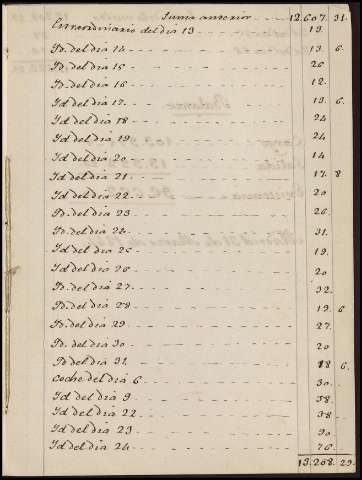 Suma anterior 12.607. 31.
Extraordinario del dia 13 13.
Yd. del dia 14 13. 6.
Yd. del dia 15 26
Yd. del dia 16 12.
Yd del dia 17. 13. 6.
Yd del dia 18 24
Yd. del dia 19. 24
Yd del dia 20 14
Yd del dia 21. 17. 8
Yd del dia 22. 20
Yd. del dia 23 26.
Yd. del dia 24. 31.
Yd del dia 25 19.
Yd del dia 26 20
Yd. del dia 27. 32.
Yd. del dia 28 19. 6
Yd. del dia 29 27.
Yd. del dia 30 20
Yd del dia 31. 18 6.
Coche del dia 6 30.
Yd del dia 9 38.
Yd del dia 22 38
Yd del dia 23 90
Yd del dia 24 76.
13.268. 29.